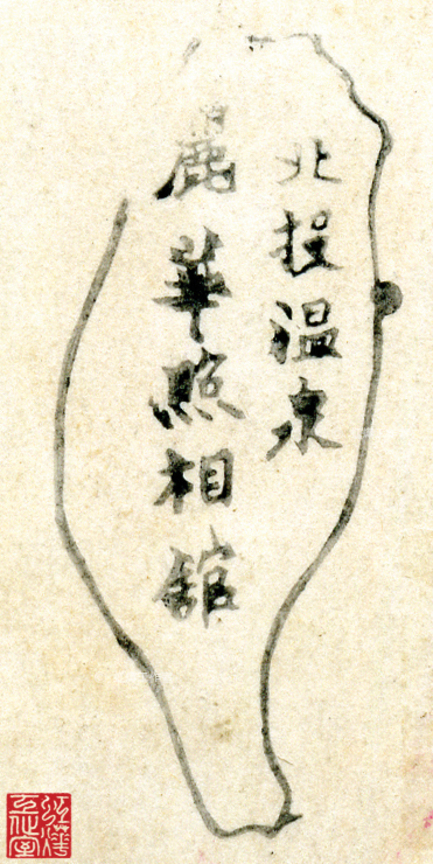 北投温泉
麗華照相舘